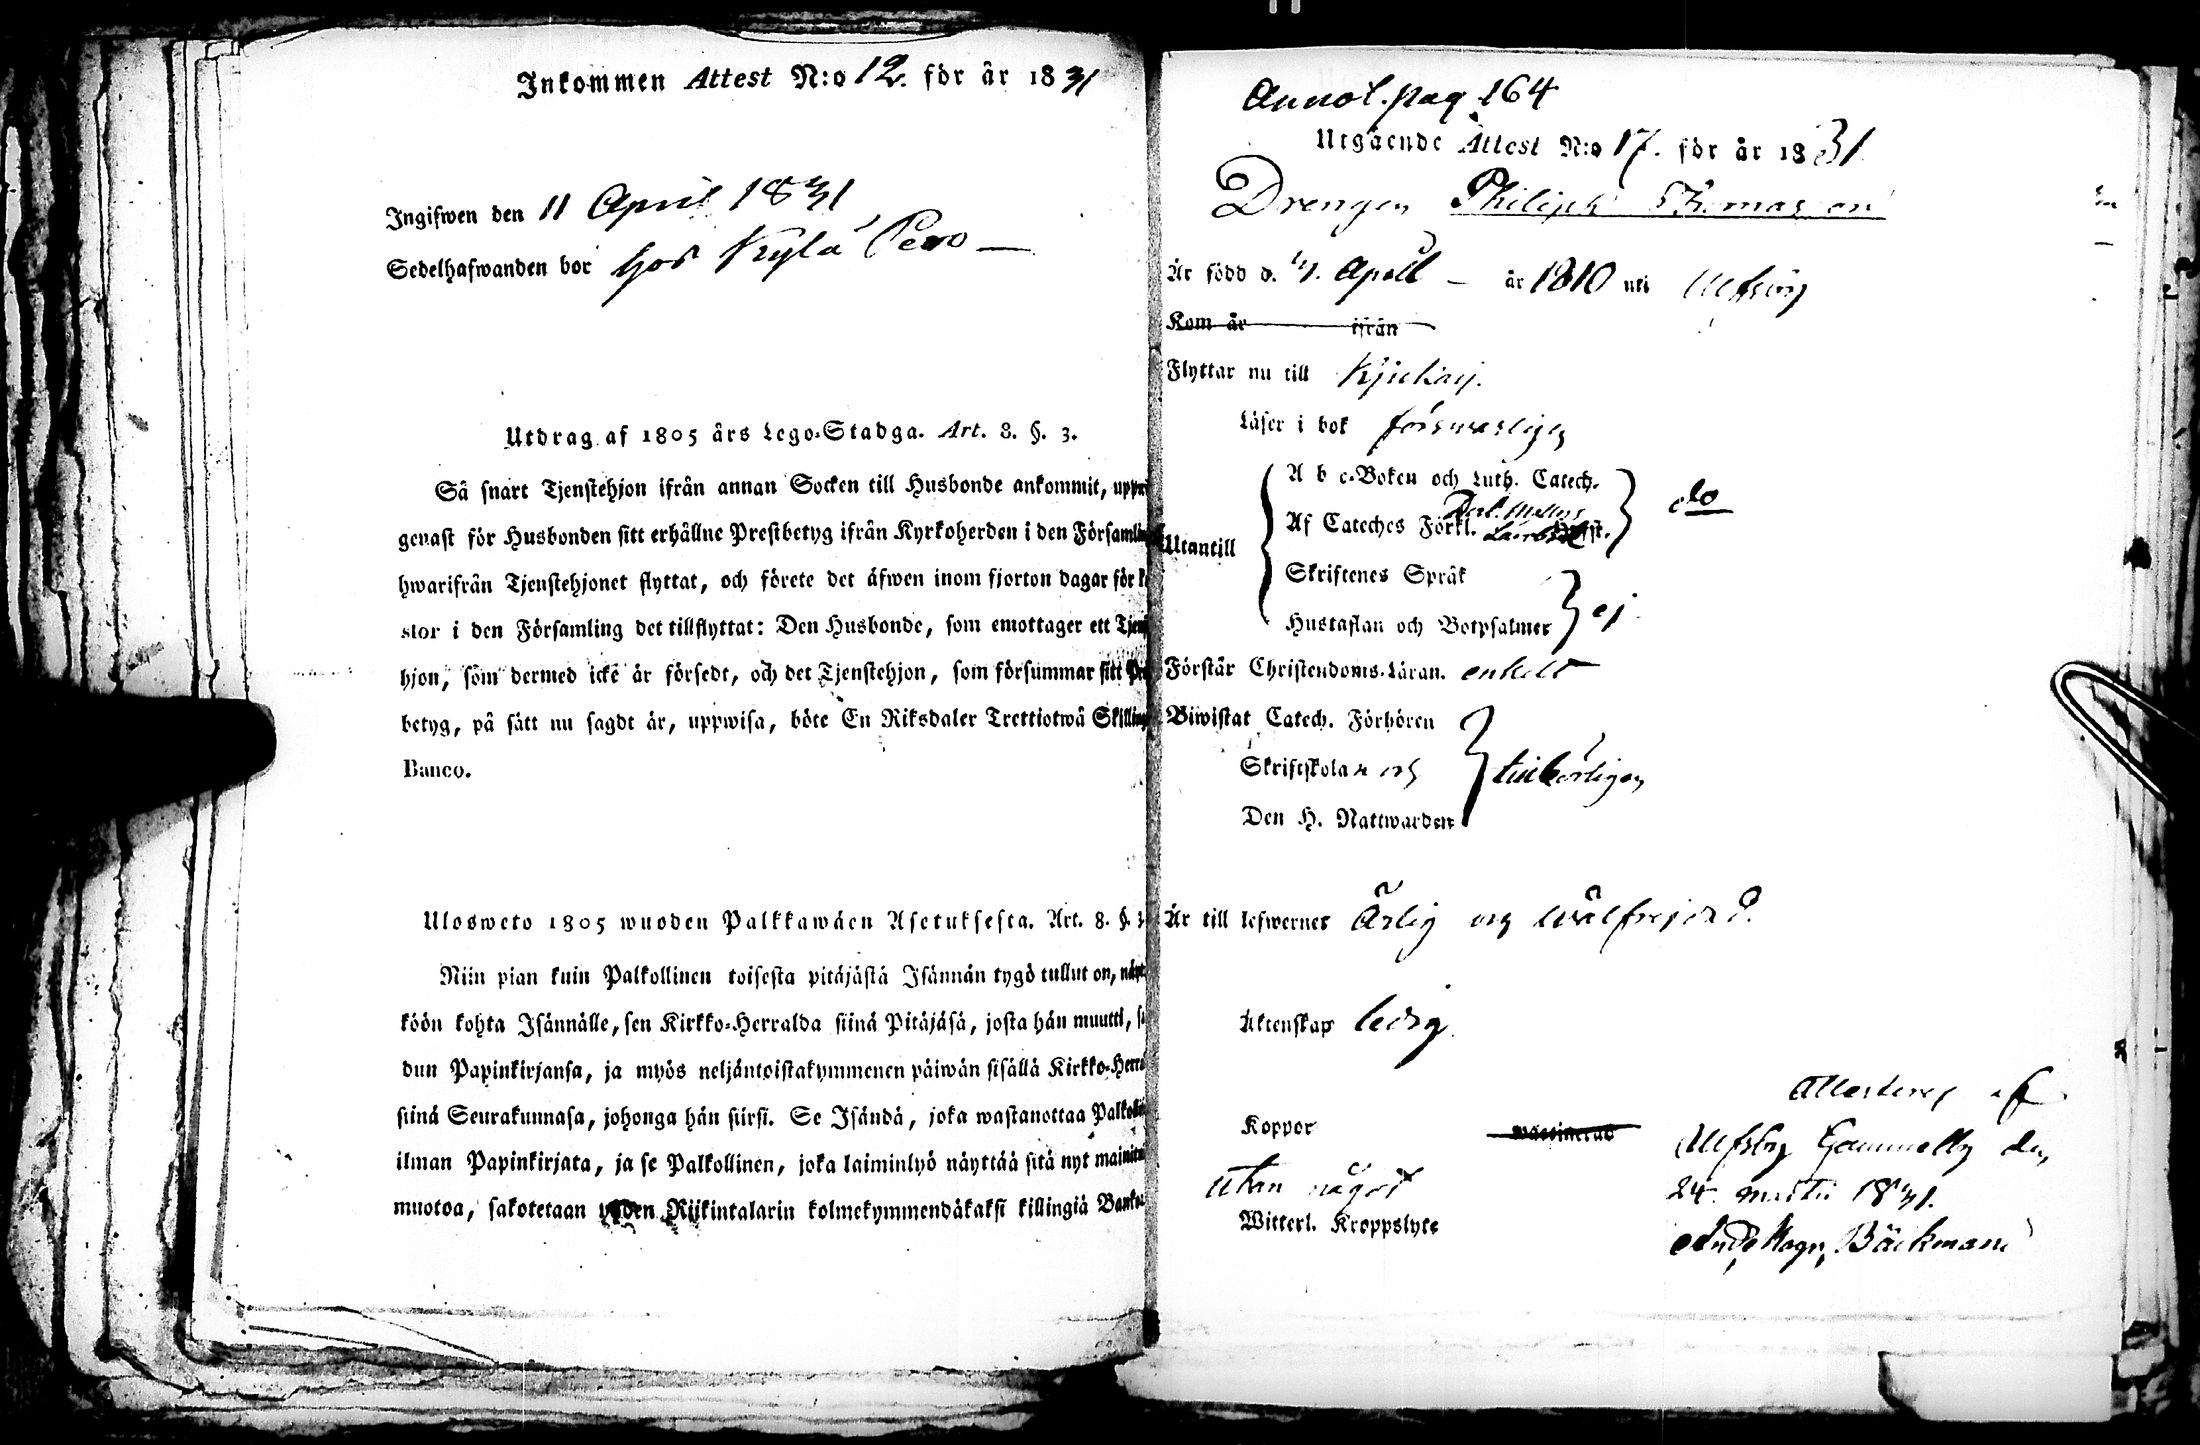 Inkommen Attest N:o 12. för år 1831
Ingifwen den 11 April 1831
Sedelhafwanden bor hos Kylä Pero —
Utdrag af 1805 års Lego-Stadga. Art. 8. §. 3.
Så snart Tjenstehjon ifrån annan Socken till Husbonde ankommit,
genast för Husbonden sitt erhållne Prestbetyg ifrån Kyrkoherden i den
hwarifrån Tjenstehjonet flyttat, och förete det äfwen inom fjorton dagar för
stor i den Församling det tillflyttat: Den Husbonde, som emottager ett
hjon, som dermed icke är försedt, och det Tjenstehjon, som försummar sitt
betyg, på sätt nu sagdt är, uppwisa, böte En Riksdaler Trettiotwå
Banco.
Ulosweto 1805 wuoden Palkkawäen Asetuksesta. Art. 8. §. 3
Niin pian kuin Palkollinen toisesta pitäjästä Isännän tygö tullut on,
köön kohta Isännälle, sen Kirkko-Herralda siinä Pitäjäsä, josta hän muutti,
dun Papinkirjansa, ja myös neljäntoistakymmenen päiwän sisällä Kirkko-
siinä Seurakunnasa, johonga hän siirsi. Se Isändä, joka wastanottaa
ilman Papinkirjata, ja se Palkollinen, joka laiminlyö näyttää sitä nyt
muotoa, sakotetaan yhden Riikintalarin kolmekymmendäkaksi killingiä
Annot. pag 164
Utgående Attest N:o 17. för år 1831
Drengen Philiph Thomasson
Är född d. April — år 1810 uti Ulfsby
Kom år ifrån
Flyttar nu till Kjukaij.
Läser i bok förswarligen
Utantill
A b c-Boken och Luth. Catech.
Af Cateches Förkl. do
Skriftenes Språk
Hustaflan och Botpsalmer ej
Förstår Christendoms-Läran. enkelt
Biwistat Catech. Förhören
Skriftskolan och tillbörligen
Den H. Nattwarden
Är till lefwernet Ärlig och wälfrejdad.
Äktenskap ledig
Attesteres af
Koppor waccinerad Ulfsby Gammelby den
utan något 24 Martii 1831.
Witterl. Kroppslyte And. Magn. Bäckman